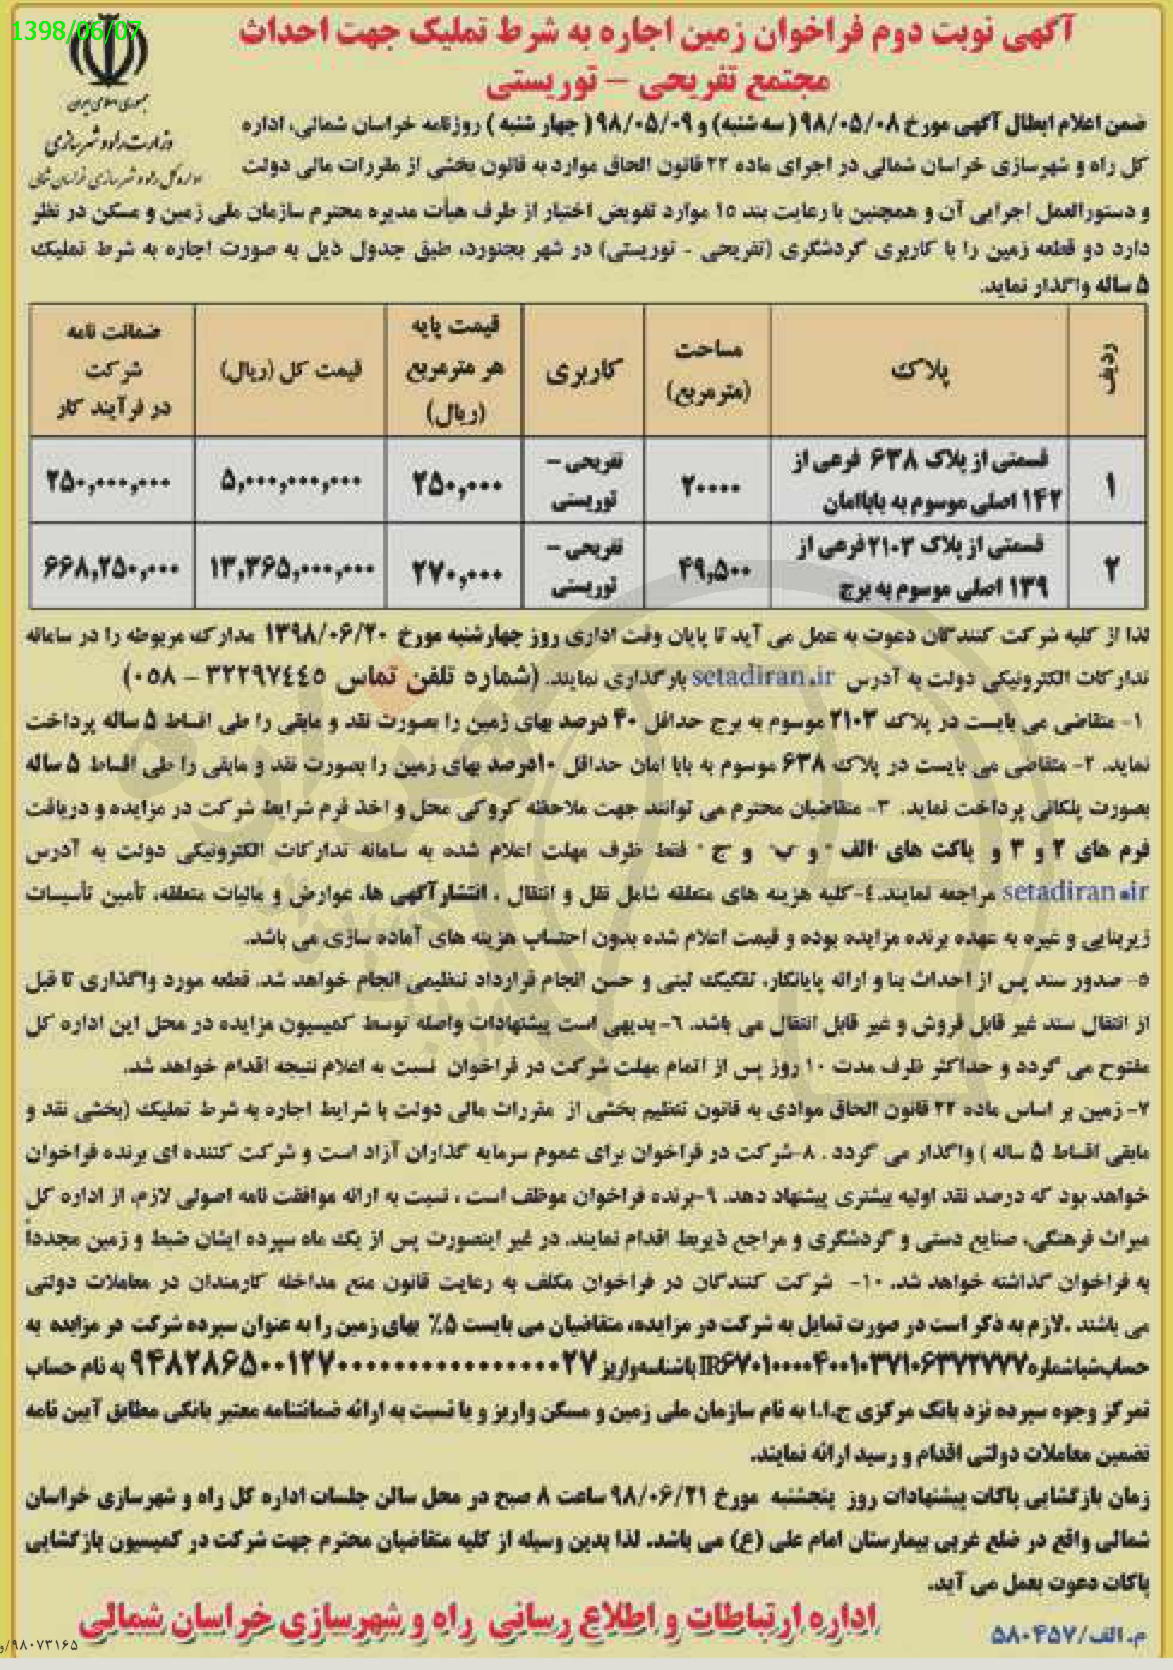 1398/06/07
آگهی نوبت دوم فراخوان زمین اجاره به شرط تملیک جهت احداث
مجتمع تفریحی – توریستی
جمهوری اسلامی ایران
وزارت راه و شهرسازی
اداره کل راه و شهرسازی خراسان شمالی
ضمن اعلام ابطال آگهی مورخ ۹۸/۰۵/۰۸ (سه شنبه) و ۹۸/۰۵/۰۹ ( چهار شنبه ) روزنامه خراسان شمالی، اداره
کل راه و شهرسازی خراسان شمالی در اجرای ماده ۲۲ قانون الحاق موارد به قانون بخشی از مقررات مالی دولت
و دستورالعمل اجرایی آن و همچنین با رعایت بند ۱۵ موارد تفویض اختیار از طرف هیأت مدیره محترم سازمان ملی زمین و مسکن در نظر
دارد دو قطعه زمین را با کاربری گردشگری (تفریحی - توریستی) در شهر بجنورد، طبق جدول ذیل به صورت اجاره به شرط تملیک
۵ ساله واگذار نماید.
ردیف | پلاک | مساحت (مترمربع) | کاربری | قیمت پایه هر مترمربع (ریال) | قیمت کل (ریال) | ضمانت نامه شرکت در فرآیند کار
۱ | قسمتی از پلاک ۶۳۸ فرعی از ۱۴۲ اصلی موسوم به باباامان | ۲۰۰۰۰ | تفریحی – توریستی | ۲۵۰,۰۰۰ | ۵,۰۰۰,۰۰۰,۰۰۰ | ۲۵۰,۰۰۰,۰۰۰
۲ | قسمتی از پلاک ۲۱۰۳ فرعی از ۱۳۹ اصلی موسوم به برج | ۴۹,۵۰۰ | تفریحی – توریستی | ۲۷۰,۰۰۰ | ۱۳,۳۶۵,۰۰۰,۰۰۰ | ۶۶۸,۲۵۰,۰۰۰
لذا از کلیه شرکت کنندگان دعوت به عمل می آید تا پایان وقت اداری روز چهارشنبه مورخ ۱۳۹۸/۰۶/۲۰ مدارک مربوطه را در سامانه
تدارکات الکترونیکی دولت به آدرس setadiran.ir بارگذاری نمایند. (شماره تلفن تماس ۳۲۲۹۷۴۴۵ – ۰۵۸)
۱- متقاضی می بایست در پلاک ۲۱۰۳ موسوم به برج حداقل ۴۰ درصد بهای زمین را بصورت نقد و مابقی را طی اقساط ۵ ساله پرداخت
نماید. ۲- متقاضی می بایست در پلاک ۶۳۸ موسوم به بابا امان حداقل ۱۰درصد بهای زمین را بصورت نقد و مابقی را طی اقساط ۵ ساله
بصورت پلکانی پرداخت نماید. ۳- متقاضیان محترم می توانند جهت ملاحظه کروکی محل و اخذ فرم شرایط شرکت در مزایده و دریافت
فرم های ۲ و ۳ و پاکت های "الف" و "ب" و "ج" فقط ظرف مهلت اعلام شده به سامانه تدارکات الکترونیکی دولت به آدرس
setadiran.ir مراجعه نمایند.۴-کلیه هزینه های متعلقه شامل نقل و انتقال ، انتشارآگهی ها، عوارض و مالیات متعلقه، تأمین تأسیسات
زیربنایی و غیره به عهده برنده مزایده بوده و قیمت اعلام شده بدون احتساب هزینه های آماده سازی می باشد.
۵- صدور سند پس از احداث بنا و ارائه پایانکار، تفکیک ثبتی و حسن انجام قرارداد تنظیمی انجام خواهد شد. قطعه مورد واگذاری تا قبل
از انتقال سند غیر قابل فروش و غیر قابل انتقال می باشد. ۶-بدیهی است پیشنهادات واصله توسط کمیسیون مزایده در محل این اداره کل
مفتوح می گردد و حداکثر ظرف مدت ۱۰ روز پس از اتمام مهلت شرکت در فراخوان نسبت به اعلام نتیجه اقدام خواهد شد.
۷-زمین بر اساس ماده ۲۲ قانون الحاق موادی به قانون تنظیم بخشی از مقررات مالی دولت با شرایط اجاره به شرط تملیک (بخشی نقد و
مابقی اقساط ۵ ساله ) واگذار می گردد . ۸-شرکت در فراخوان برای عموم سرمایه گذاران آزاد است و شرکت کننده ای برنده فراخوان
خواهد بود که درصد نقد اولیه بیشتری پیشنهاد دهد. ۹-برنده فراخوان موظف است ، نسبت به ارائه موافقت نامه اصولی لازم، از اداره کل
میراث فرهنگی، صنایع دستی و گردشگری و مراجع ذیربط اقدام نمایند. در غیر اینصورت پس از یک ماه سپرده ایشان ضبط و زمین مجدداً
به فراخوان گذاشته خواهد شد. ۱۰- شرکت کنندگان در فراخوان مکلف به رعایت قانون منع مداخله کارمندان در معاملات دولتی
می باشند .لازم به ذکر است در صورت تمایل به شرکت در مزایده، متقاضیان می بایست ۵٪ بهای زمین را به عنوان سپرده شرکت در مزایده به
حساب شبا شماره باشناسه واریز به نام حساب
تمرکز وجوه سپرده نزد بانک مرکزی ج.ا.ا به نام سازمان ملی زمین و مسکن واریز و یا نسبت به ارائه ضمانتنامه معتبر بانکی مطابق آیین نامه
تضمین معاملات دولتی اقدام و رسید ارائه نمایند.
زمان بازگشایی پاکات پیشنهادات روز پنجشنبه مورخ ۹۸/۰۶/۲۱ ساعت ۸ صبح در محل سالن جلسات اداره کل راه و شهرسازی خراسان
شمالی واقع در ضلع غربی بیمارستان امام علی (ع) می باشد. لذا بدین وسیله از کلیه متقاضیان محترم جهت شرکت در کمیسیون بازگشایی
پاکات دعوت بعمل می آید.
اداره ارتباطات و اطلاع رسانی راه و شهرسازی خراسان شمالی
م.الف/۵۸۰۴۵۷
۹۸۰۷۳۱۶۵/و